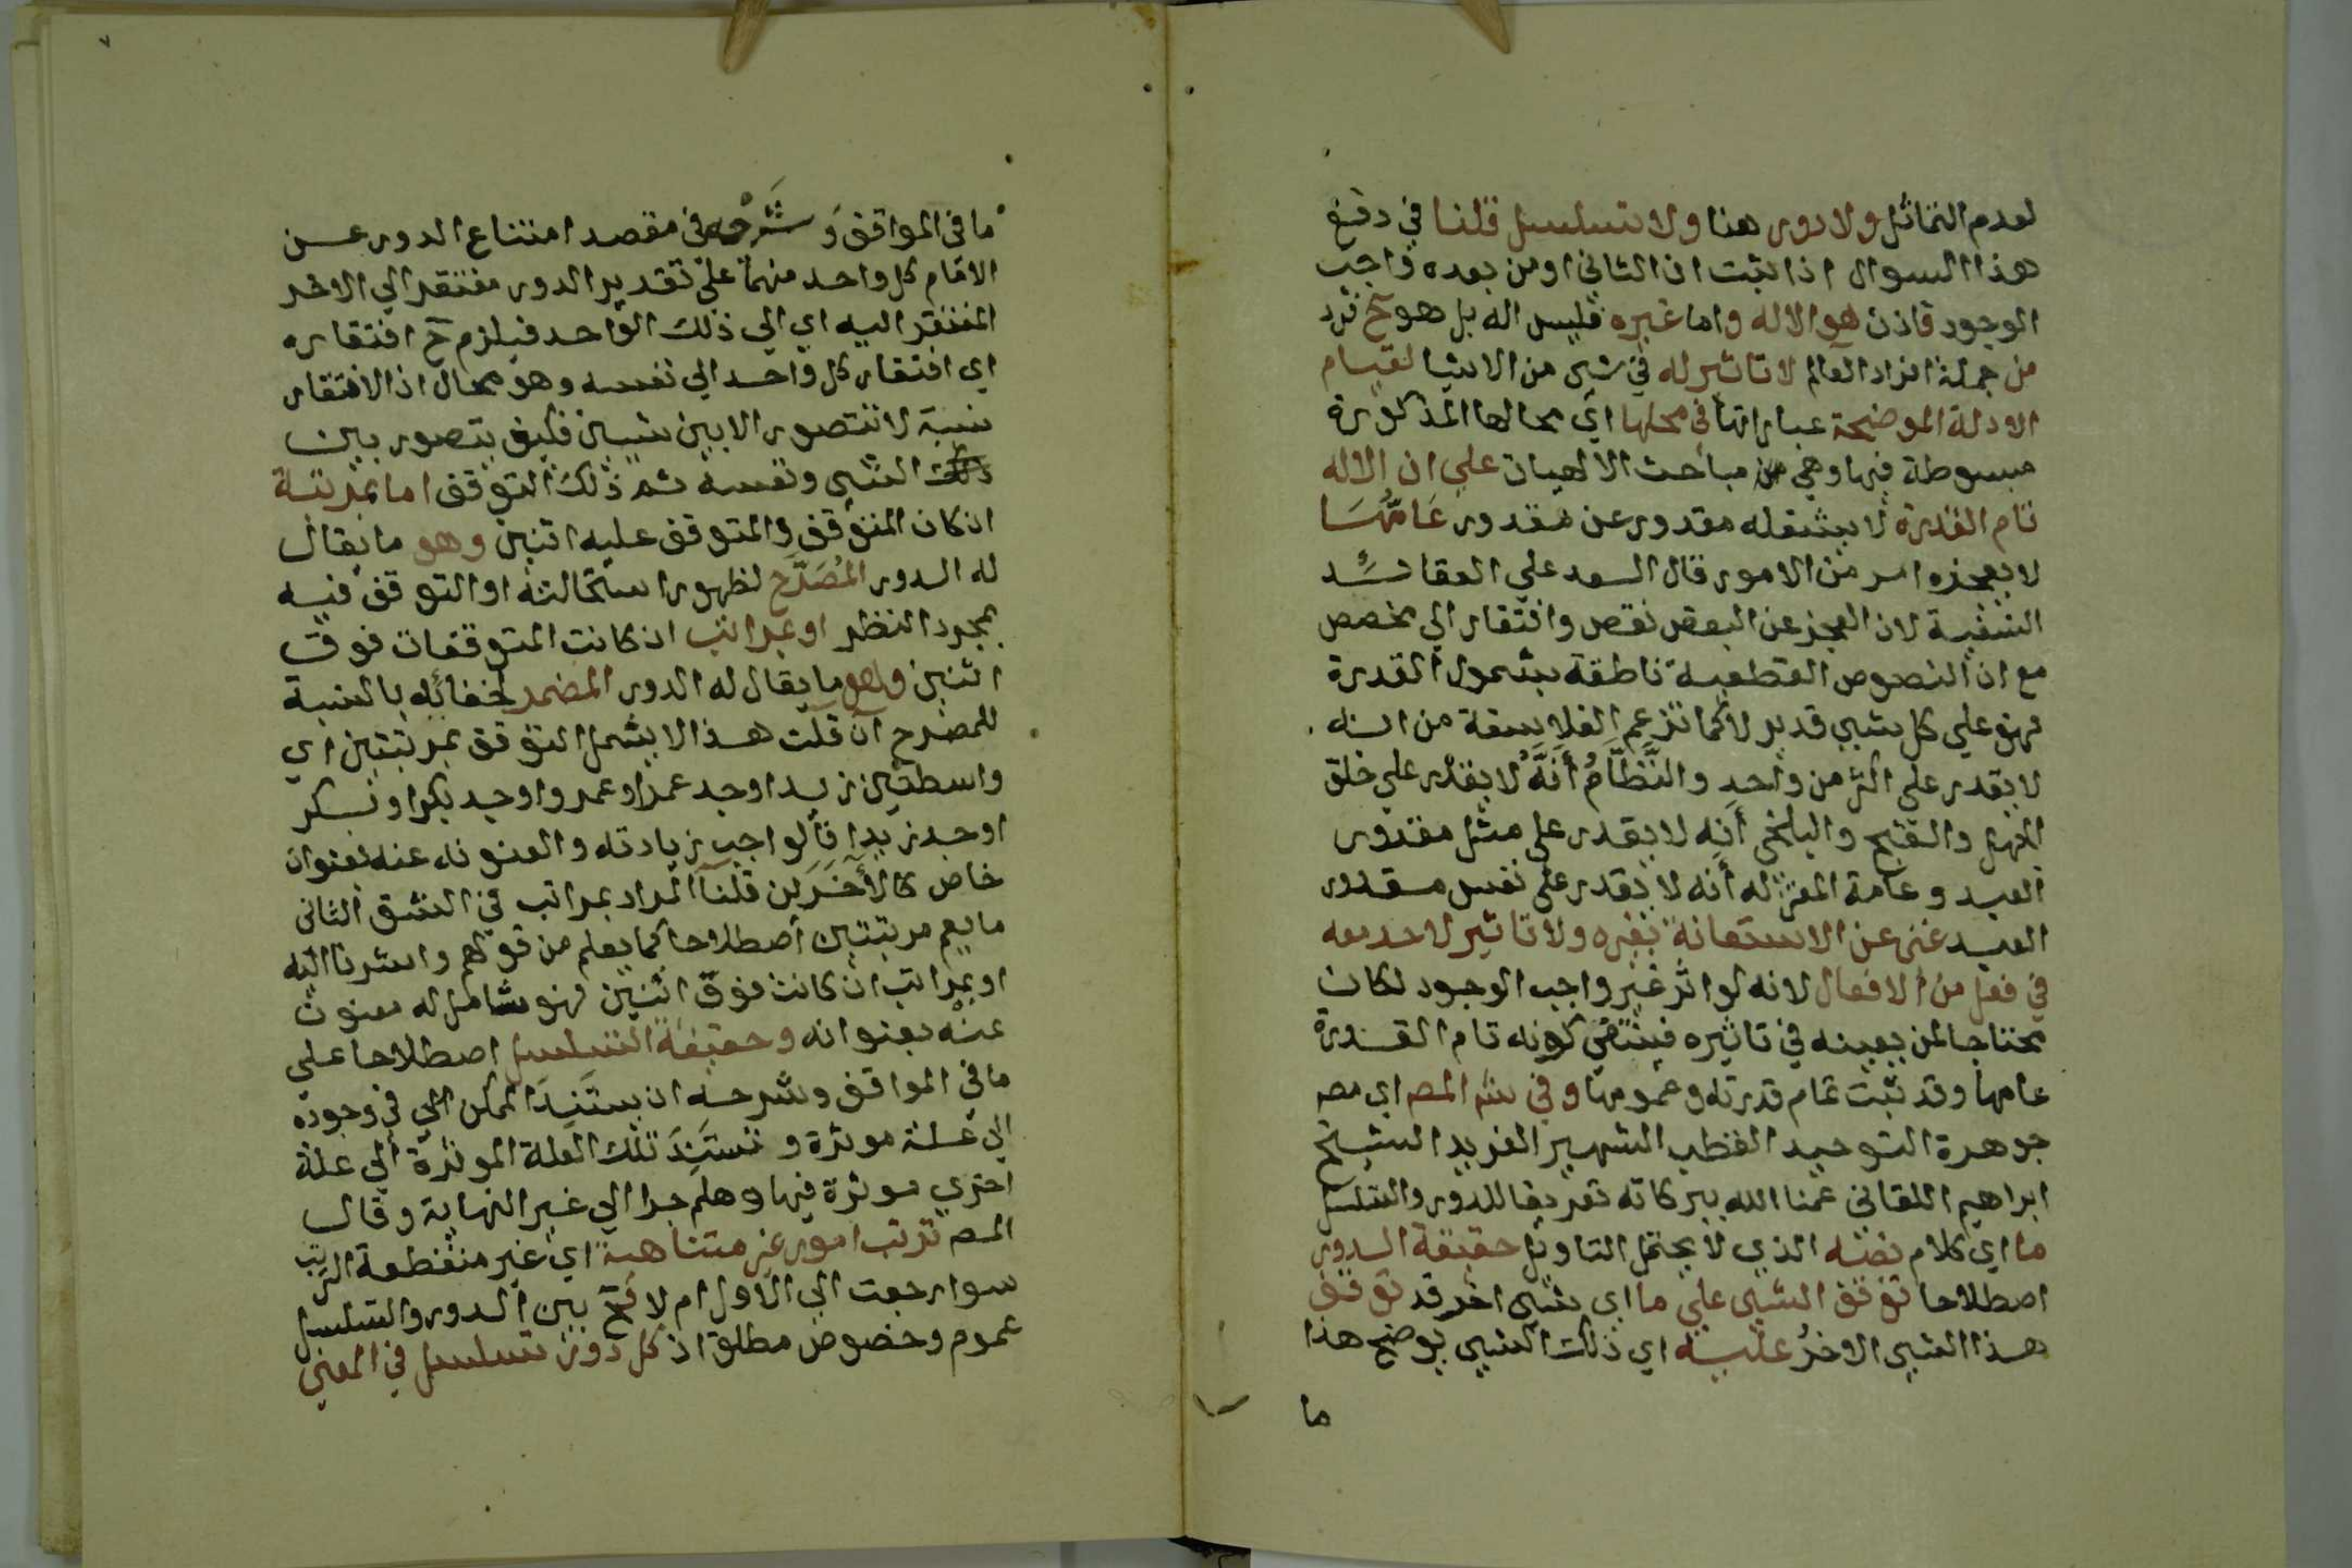 لعدم التماثل ولا دور هنا ولا تسلسل قلنا في دفع
هذا السوال اذا ثبت ان الثاني او من بعده واجب
الوجود فاذن هو الاله واما غيره فليس اله بل هو ح فرد
من جملة افراد العالم لا تاثير له في شي من الاشيا لقيام
الادلة الموضحة عباراتها في محلها اي محالها المذكورة
مبسوطة فيها وهي من مباحث الالهيات علي ان الاله
تام القدرة لا يشغله مقدور عن مقدور عامها
لا يعجزه امر من الامور قال السعد علي العقائد
النسفية لان العجز عن البعض نقص وافتقار الي مخصص
مع ان النصوص القطعية ناطقة بشمول القدرة
فهو علي كل شيي قدير لا كما تزعم الفلاسفة من انه
لا يقدر علي اكثر من واحد والنَّظَّامُ أَنَّهُ لا يقدر علي خلق
الجهل والقبح والبلخي أنه لا يقدر علي مثل مقدور
العبد وعامة المعتزله أنه لا يقدر علي نفس مقدور
العبد غني عن الاستعانة بغيره ولا تاثير لاحد معه
في فعل من الافعال لانه لو اثر غير واجب الوجود لكان
محتاجا لمن يعينه في تاثيره فينتفي كونه تام القدرة
عامها وقد ثبت تمام قدرته وعمومها وفي شر المص اي مص
جوهرة التوحيد القطب الشهير الفريد الشيخ
ابراهيم اللقاني عمنا الله ببركاته تعريفا للدور والتسلسل
ما اي كلام نصه الذي لا يحتمل التاويل حقيقة الدور
اصطلاحا توقف الشيي علي ما اي شيي اخر قد توقف
هذا الشيي الاخرُ عليه اي ذلك الشيي يوضح هذا
ما
٧
ما في المواقف وَشَرْحِه في مقصد امتناع الدور عن
الامام كل واحد منهما علي تقدير الدور مفتقر الي الاخر
المفتقر اليه اي الي ذلك الواحد فيلزم ح افتقاره
اي افتقار كل واحد الي نفسه وهو محال اذ الافتقار
نسبة لا تتصور الا بين شيين فكيف يتصور بين
الشيي ونفسه ثم ذلك التوقف اما بمرتبة
ان كان المتوقف والمتوقف عليه اثنين وهو ما يقال
له الدور المُصَرَّح لظهور استحالته او التوقف فيه
بمجرد النظر او بمراتب ان كانت المتوقفات فوق
اثنين وهو ما يقال له الدور المضمر لخفائه بالنسبة
للمصرح ان قلت هذا لا يشمل التوقف بمرتبتين اي
واسطتين زيد اوجد عمرا وعمرو اوجد بكرا وبكر
اوجد زيدا فالواجب زيادته والعنونه عنه بعنوان
خاص كالأَخَرَين قلنا المراد بمراتب في الشق الثاني
ما يعم مرتبتين اصطلاحا كما يعلم من قولهم واشرنا اليه
او بمراتب ان كانت فوق اثنين فهو شامل له معنون
عنه بعنوانه وحقيقة التسلسل اصطلاحا علي
ما في المواقف وشرحه ان يستَنِدَ الممكن الي في وجوده
الي علة موثرة و تستَنِدَ تلك العلة الموثرة الي علة
اخري موثرة فيها وهلم جرا الي غير النهاية وقال
المص ترتب امور غير متناهية اي غير منقطعة الترتب
سوا رجعت الي الاول ام لا فح بين الدور والتسلسل
عموم وخصوص مطلق اذ كل دور تسلسل في المعني